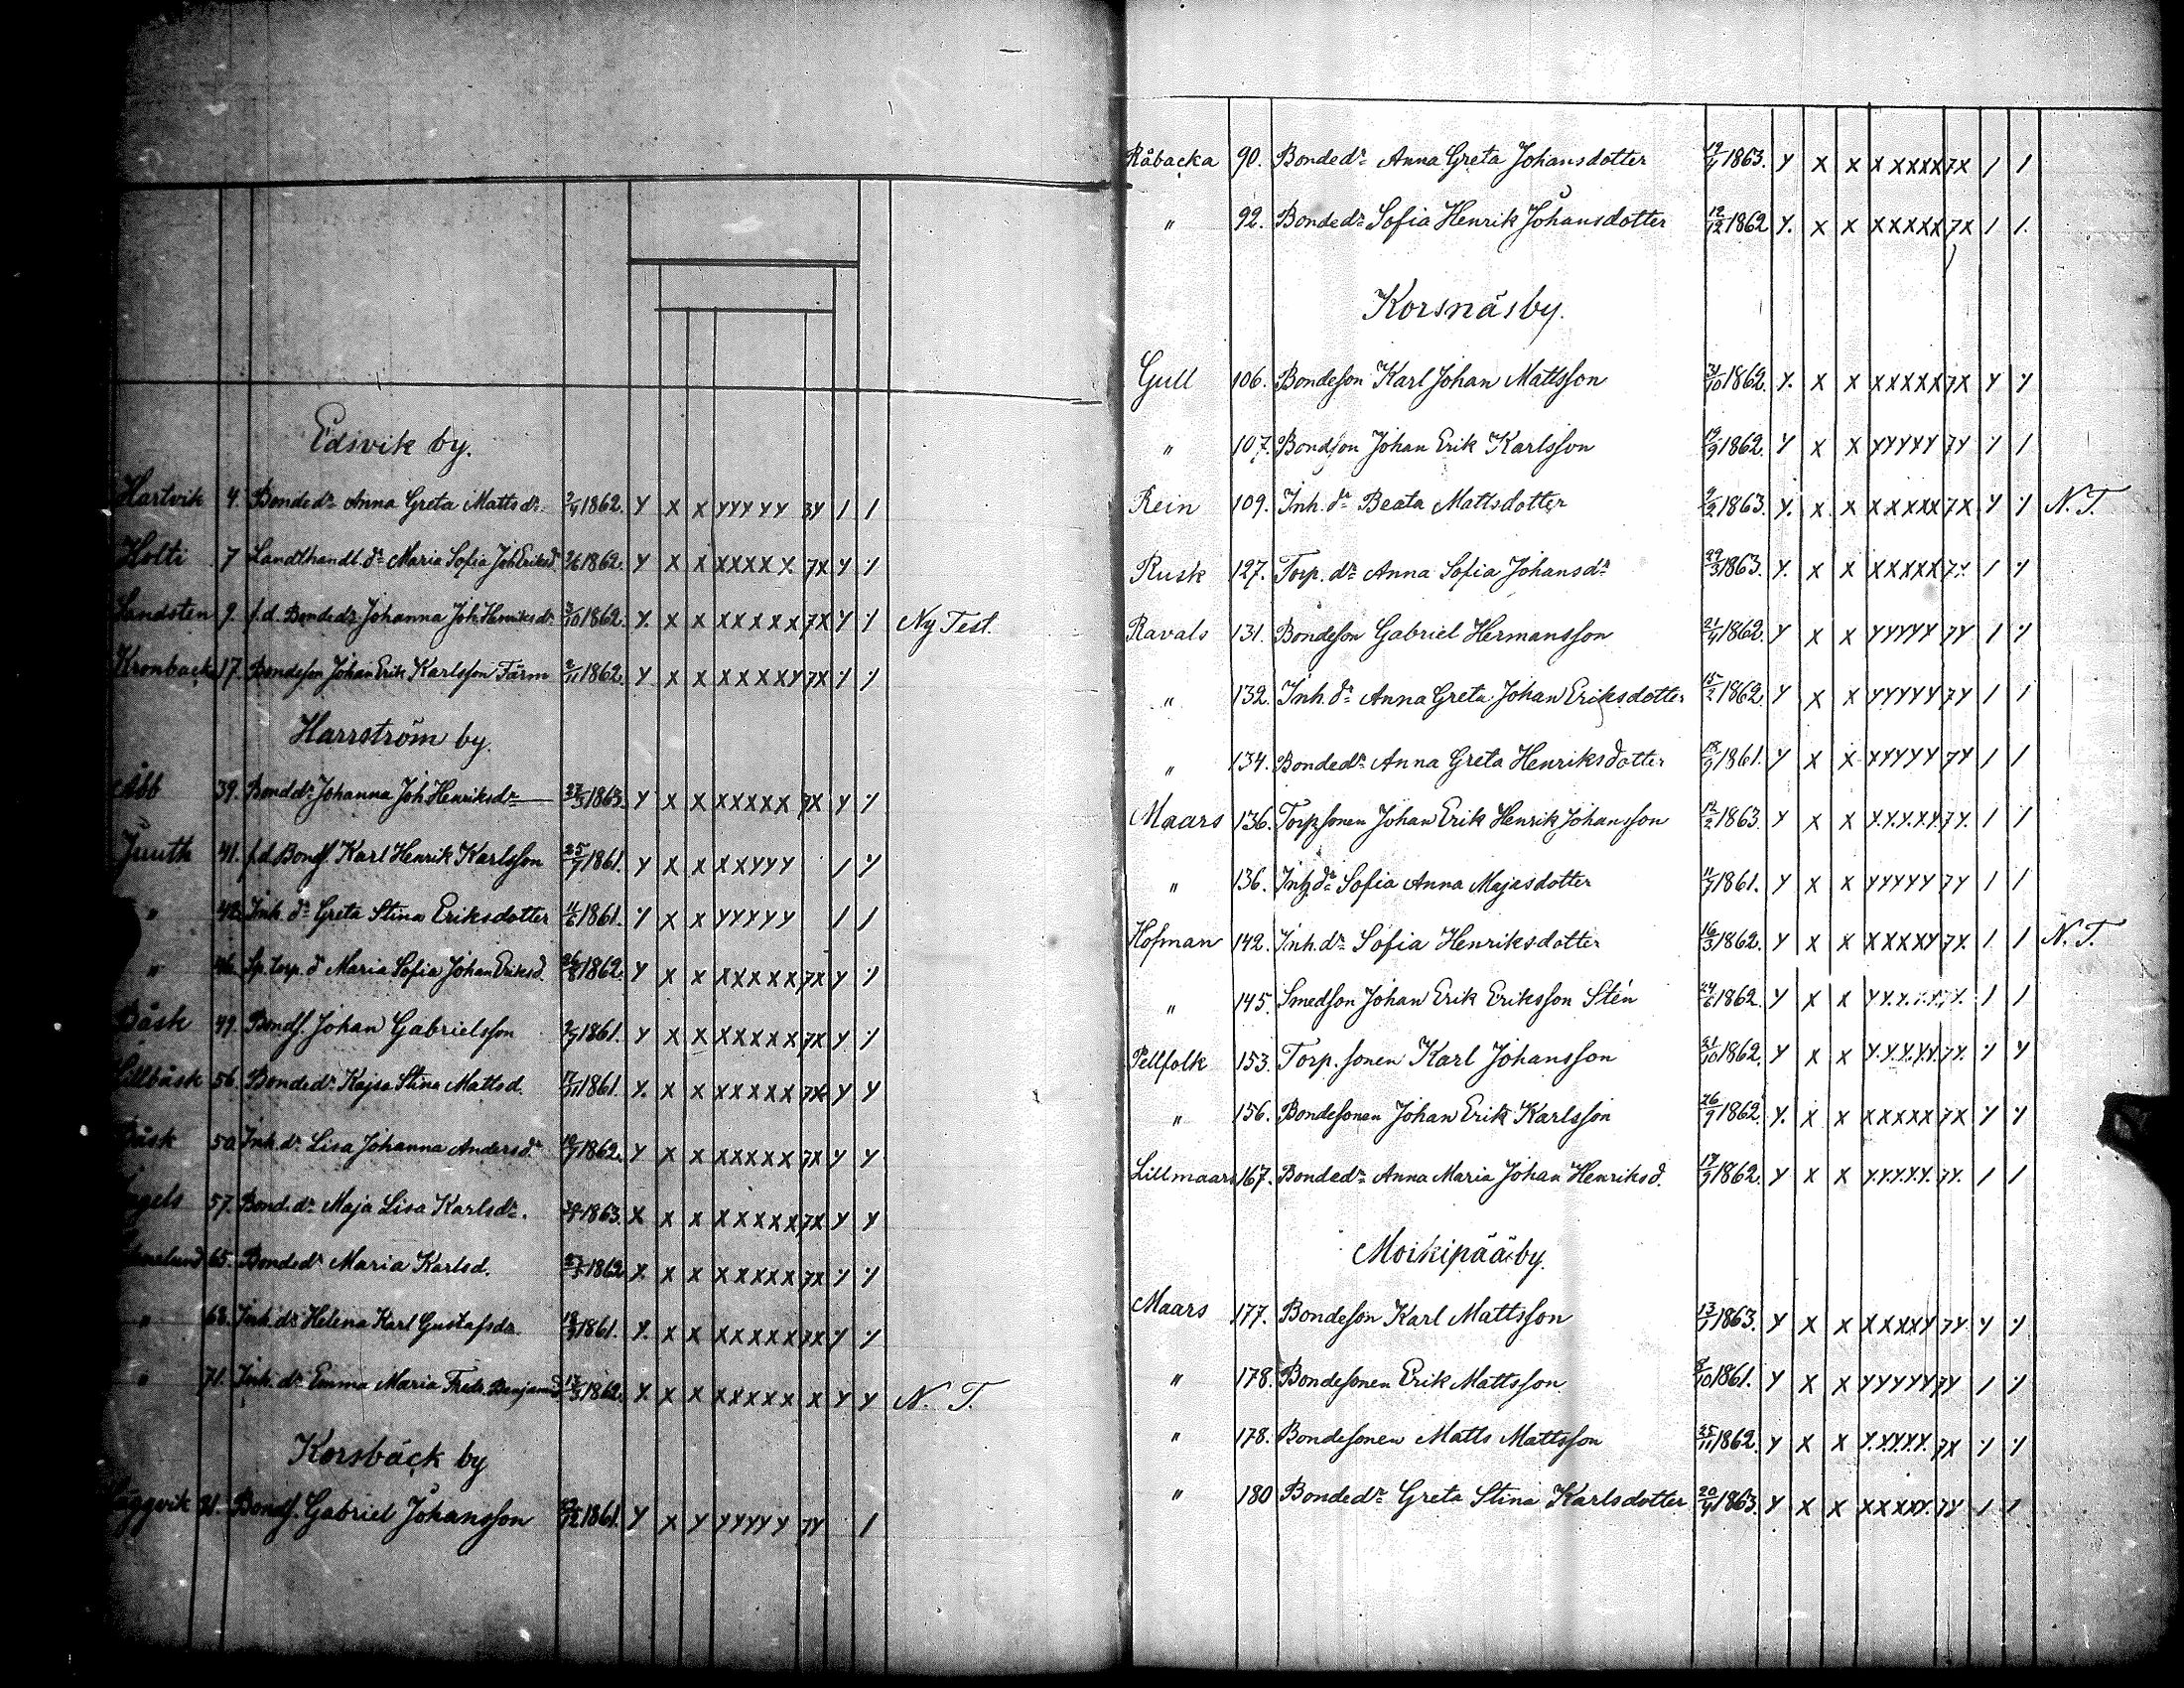 Edsvik by.
Hartvik 4. Bondedr Anna Greta Matts dr. 1862. Y X X YYYYY 3Y / /
Holti 7 Landthandl. dr Maria Sofia Joh Eriksd. 1862. Y X X XXXXX 7X Y ∕
Sandsten 9. f.d. Bondedr Johanna Joh. Henriksdr 3/10 1862. Y. X X XXXXX 7X Y Ny Test.
Kronback 17. Bondeson Johan Erik Karlsson Färm 2/11 1862. Y X X XXXXY 7X
Harrström by.
Abb 39. Bondedr Johanna Joh Henriksdr 1863. Y X X XXXXX 7X Y
Juuth 41. f.d. Bonds. Karl Henrik Karlsson 1861. Y X X XXYYY /
" 42. Inh. dr Greta Stina Eriksdotter 1861. X X YYYYY / /
" 46. Sp. torp. d Maria Sofia Johan Eriksd. 26/8 1862. Y X X XXXXX 7X Y
Båsk 49. Bonds. Johan Gabrielsson 1861. Y X X XXXXX 7X Y
Lillbåsk 56. Bondedr Kajsa Stina Mattsd. 17/11 1861. Y. X X XXXXX 7X Y Y
Båsk 50. Inh. dr Lisa Johanna Andersdr 1862. Y X X XXXXX 7X Y Y
57. Bond. dr Maja Lisa Karlsdr. 1863. X X X XXXXX 7X Y Y
65. Bondedr Maria Karlsd. 1862 X X X XXXXX 7X
" 68. Inh. dr Helena Karl Gustafsdr. 1861. Y. X X XXXXX
" 71. Inh. dr Emma Maria Fredr. Benjamind 1862. X X X XXXXX X Y Y N. T.
Korsbäck by
21. Bonds. Gabriel Johansson 1861. Y X Y YYYYY 7Y /
Råbacka 90. Bondedr Anna Greta Johansdotter 1863. Y X X XXXXX 7X / /
" 92. Bondedr Sofia Henrik Johansdotter 12/12 1862 Y. X X XXXXX 7X / /
Korsnäs by.
Gull 106. Bondeson Karl Johan Mattsson 31/10 1862. Y. X X XXXXX 7X Y
" 107. Bondson Johan Erik Karlsson 1862. X X YYYYY 7Y /
Rein 109. Inh. dr Beata Mattsdotter 1863. Y. X X XXXXX 7X Y N. T.
Rusk 127. Torp. dr Anna Sofia Johansdr 29/3 1863. Y. X X XXXXX 7X /
Ravals 131. Bondeson Gabriel Hermansson 1862. Y X X YYYYY 7Y /
" 132. Inh. dr Anna Greta Johan Eriksdotter 15/2 1862. Y X X YYYYY 7Y / /
" 134. Bondedr Anna Greta Henriksdotter 1861. Y X X YYYYY 7Y / /
Maars 136. Torpsonen Johan Erik Henrik Johansson 12/2 1863. Y X X Y.Y.Y.X.Y. 7Y. / /
" 136. Inh. dr Sofia Anna Majasdotter 1861. Y X X YYYYY 7Y / /
Hofman 142. Inh. dr Sofia Henriksdotter 16/3 1862. Y X X XXXXY 7X. / / N. T.
" 145. Smedson Johan Erik Eriksson Stén 24/6 1862. Y X X / /
Pellfolk 153. Torp. sonen Karl Johansson 31/10 1862. Y X X Y.Y.Y.Y.Y. 7Y. Y
" 156. Bondesonen Johan Erik Karlsson 26/9 1862. Y. X X XXXXX 7X
Lillmaars 167. Bondedr Anna Maria Johan Henriksd. 1862. Y X X Y.Y.Y.Y.Y. 7Y. / /
Moikipää by.
Maars 177. Bondeson Karl Mattsson 1863. Y X X XXXXY 7Y Y
" 178. Bondesonen Erik Mattsson 8/10 1861. Y X X YYYYY 7Y /
" 178. Bondesonen Matts Mattsson 25/11 1862. Y X X Y.XYY.Y. 7X
" 180 Bondedr Greta Stina Karlsdotter 1863. Y X X XXXXY. 7Y / /